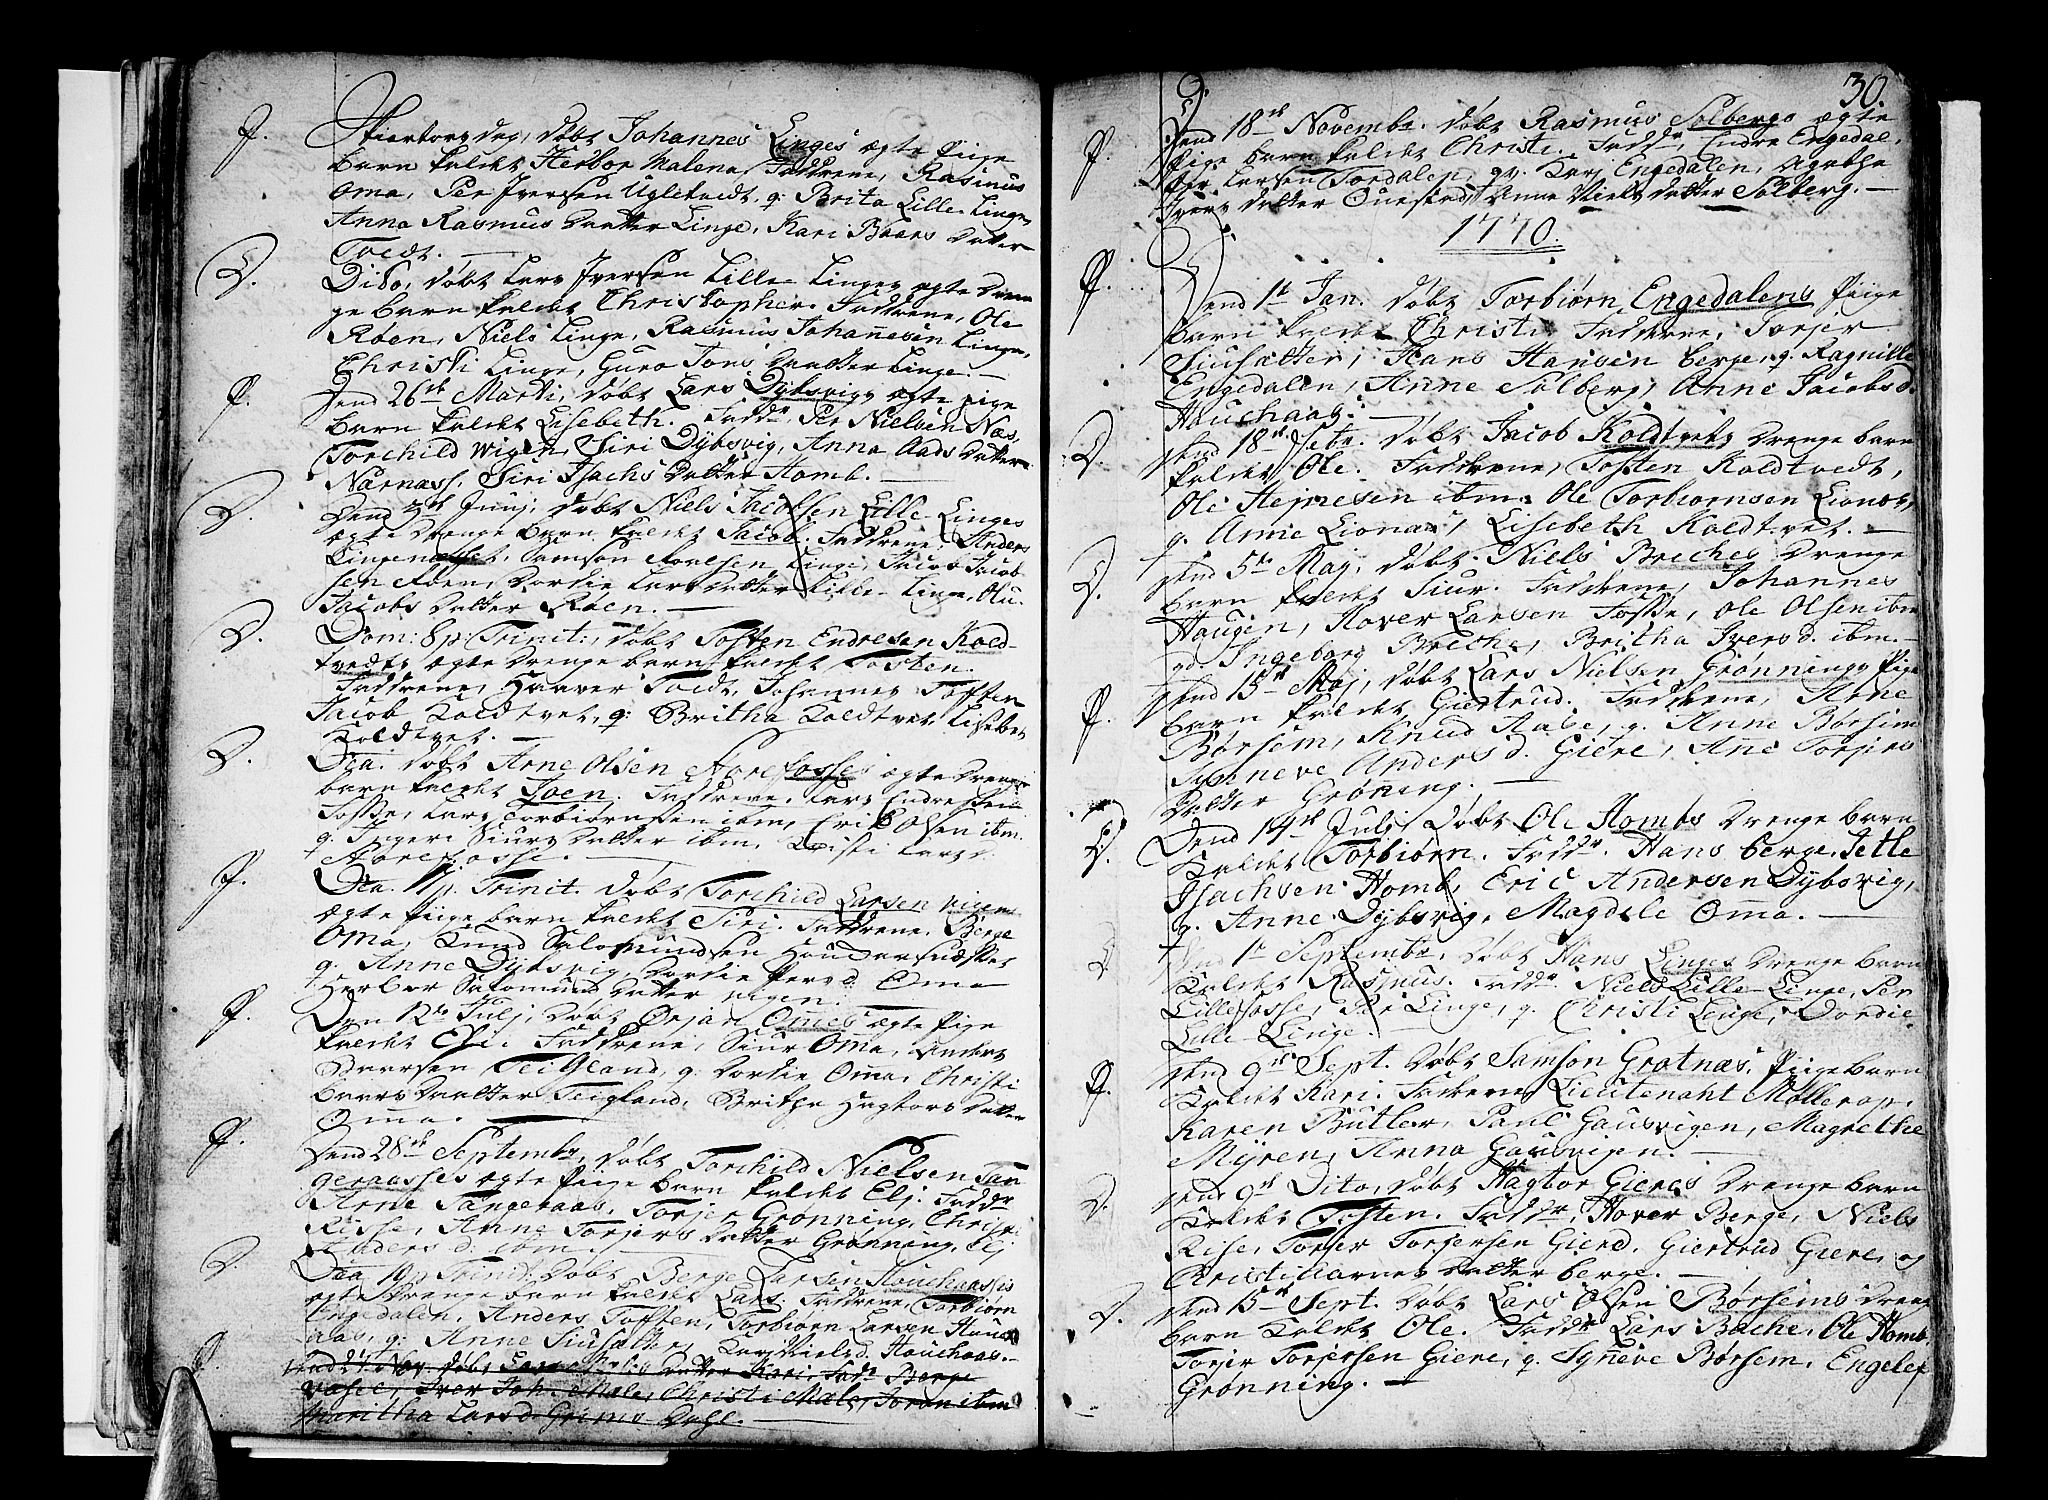 P. Skiertorsdag, døbt Johannes Linges ægte Pige
barn kaldet Herbor Malena, Faddrene, Rasmus
Oma, Per Iversen Uglekvedt, q: Brita Lille Linge,
Anna Rasmus Datter Linge, Kari Baars Datter
Toedt.
D. Dito, døbt Lars Iversen Lille Linges ægte Dren
ge barn kaldet Christopher. Faddrene, Ole
Røen, Niels Linge, Rasmus Johannesen Linge,
Christi Linge, Guro Jons Daatter Linge.
P. Dend 26de Marti, døbt Lars Dybsvigs ægte pige
barn kaldet Lisebeth. Faddr Per Nielsen Næs,
Torchild Wigen, Siri Dybsvig, Anna Aads Datter
Nærnæss. Siri Isachs Datter Homb.
D. Dend Junij, døbt Niels Jacobsen Lille Linges
ægte Drenge Barn kaldet Jacob. Faddrene, Anders
Samson Linge, Jacob Jacob
sen Røen, Dordie Lars Datter Lille Linge, Olu
Jacobs Datter Røen.
D. Dom: 8 p: Trinit:, døbt Tosten Endresen Kold-
tvedts ægte Drenge barn kaldet Tosten.
Faddrene, Haaver Toedt, Johannes Toften
Jacob Koldtvet, q: Britha Koldtvet Lisebet
Koldtvet.
D. Dca. døbt Arne Olsen Aarefosses ægte Drenge
barn kaldet Joen. Faddrene, Lars Endresen
Fosse, Lars Torbiørnsen ibm, Erik Olsen ibm.
q. Ingeri Siurs Datter ibm, Kristi Larsd.
Aarefosse.
P. Dca. 11 p. Trinit. døbt Torchild Larsen vigens
ægte Piige barn kaldet Siri. Faddrene, Berge
Oma, Knud Salomundsen
q. Anne Dybsvig, Dordie Persd. Oma
Herbor Salomund Datter vigen.
P. Den 12te Julj, døbt Ørjan Omes ægte Pige
kaldet Elj. Faddrene, Siur Oma, Anders
Teigland, q: Dordie Oma, Christi
Baars Daatter Teigland, Britha Hagtors Datter
Oma.
P. Dend 28de Septembr, døbt Torchild Nielsen Tan
geraasses ægte Piige barn kaldet Elj. Faddr
Arne Tangeraas, Torjer Grønning, Chrisi
Risse, Anne Torjers Datter Grønning, Elj
Anders d: ibm.
D. Dca 19 p Trinit: døbt Berge Larsen Houchaasses
ægte Drenge barn kaldet Lars. Faddrene, Torbiørn
Engedalen, Anders Toften, Torbiørn Larsen Houc
aas, q. Anne Siusætter, Kari Nielsd. Houchaas.
Dend Nov døbt Datter Kari, Fadr Berge
Iver Joh. Male, Christi Male, ibm
Maritha Larsd. Grimo Dahl.
30.
P. Dend 18de Novembr. døbt Rasmus Solbergs ægte
Pige barn kaldet Christi. Faddr, Endre Engedal,
Per Larsen Tordalen, qv. Kari Engedalen, Agatha
Ivers datter Ouestad, Anna Niels datter Solberg.
1770.
P. Dend 1te Jan. døbt Torbiørn Engedalens Piige
barn kaldet Christi. Faddrene, Torjer
Siusætter, Hans Hansen berge, q. Ragnille
Engedalen, Anne Solberg, Anne Jacobsd.
Houchaas.
D. Dend 18de Febr. døbt Jacob Koldtvets Drenge barn
kaldet Ole. Faddrene, Tosten Koldtvedt,
Ole ibm. Ole Torbiornsen Lionas,
q. Anne Lionas, Lisebeth Koldtvet.
D. Dend 5te Maj, døbt Niels Breches Drenge
barn kaldet Siur. Faddrene, Johannes
Haugen, Haver Larsen Fosse, Ole Olsen ibm
qv. Ingeborg Breche, Britha Ivers d. ibm.
P. Dend 15de Maj, døbt Lars Nielsen Grønnings Pige
barn kaldet Giertrud. Faddrene, Arne
Børsem, Knud Aase, q. Anne Børsem
Synneve Anders d. Giere, Ane Torjers
Datter Grøning.
D. Dend 14de Julj, døbt Ole Hombs Drenge barn
kaldet Torbiørn. Faddr. Hans berge, Jelle
Isachsen Homb, Eric Andersen Dybsvig,
q. Anne Dybsvig, Magdele Oma.
D. Dend 1te Septembr, døbt Hans Linges Drenge barn
kaldet Rasmus. Faddr. Niels Lille Linge, Per
Lillefosse, Per Linge, q. Christi Linge, Dordie
Lille Linge.
P. Dend 9de Sept. døbt Samson Grotnæs, Piige barn
kaldet Kari. Faddrene Lieutenant Møllerop,
Karen Butler, Paul Gausvigen, Magrethe
Myren, Anna Gausvigen.
D. Dend 9de Dito, døbt Hagtor Gieres Drenge barn
kaldet Tosten. Faddr, Hover Berge, Niels
Rise, Torjer Torjersen Giere, Giertrud Giere, og
Christi Aarnes datter berge.
D. Dend 15de Sept. døbt Lars Olsen Børsems Dreng
barn kaldet Ole. Faddr Lars Bache, Ole Homb,
Torjer Torjersen Giere, q. Synneve Børsem, Engelef
Grønning.